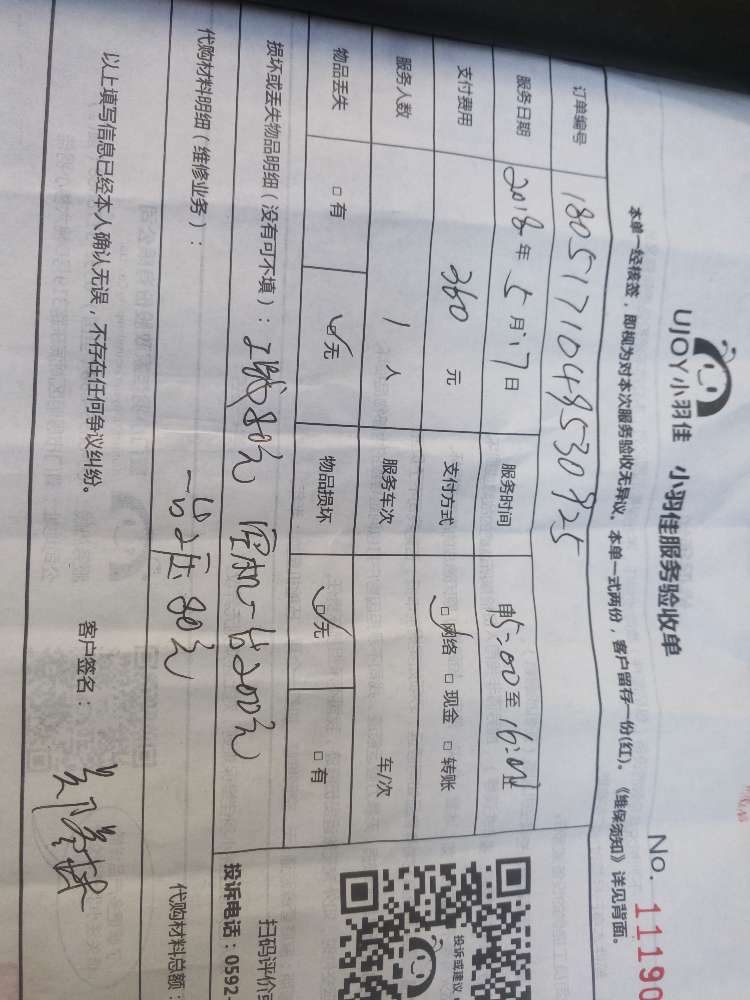 UJOY小羽佳 小羽佳服务验收单
No. 11190
本单一经核签，即视为对本次服务验收无异议、本单一式两份，客户留存一份(红)。《维保须知》详见背面。
订单编号 1805171049530925
服务日期 2018年5月17日 服务时间 由15:00至16:00止
支付费用 360元 支付方式 网络 现金 转账
服务人数 1人 服务车次 车/次
物品丢失 有 无 物品损坏 无 有
损坏或丢失物品明细（没有可不填）： 80元 一台200元
代购材料明细（维修业务）： 一台 80元
代购材料总额：
以上填写信息已经本人确认无误，不存在任何争议纠纷。 客户签名：
投诉或建议
扫码评价或
投诉电话：0592-